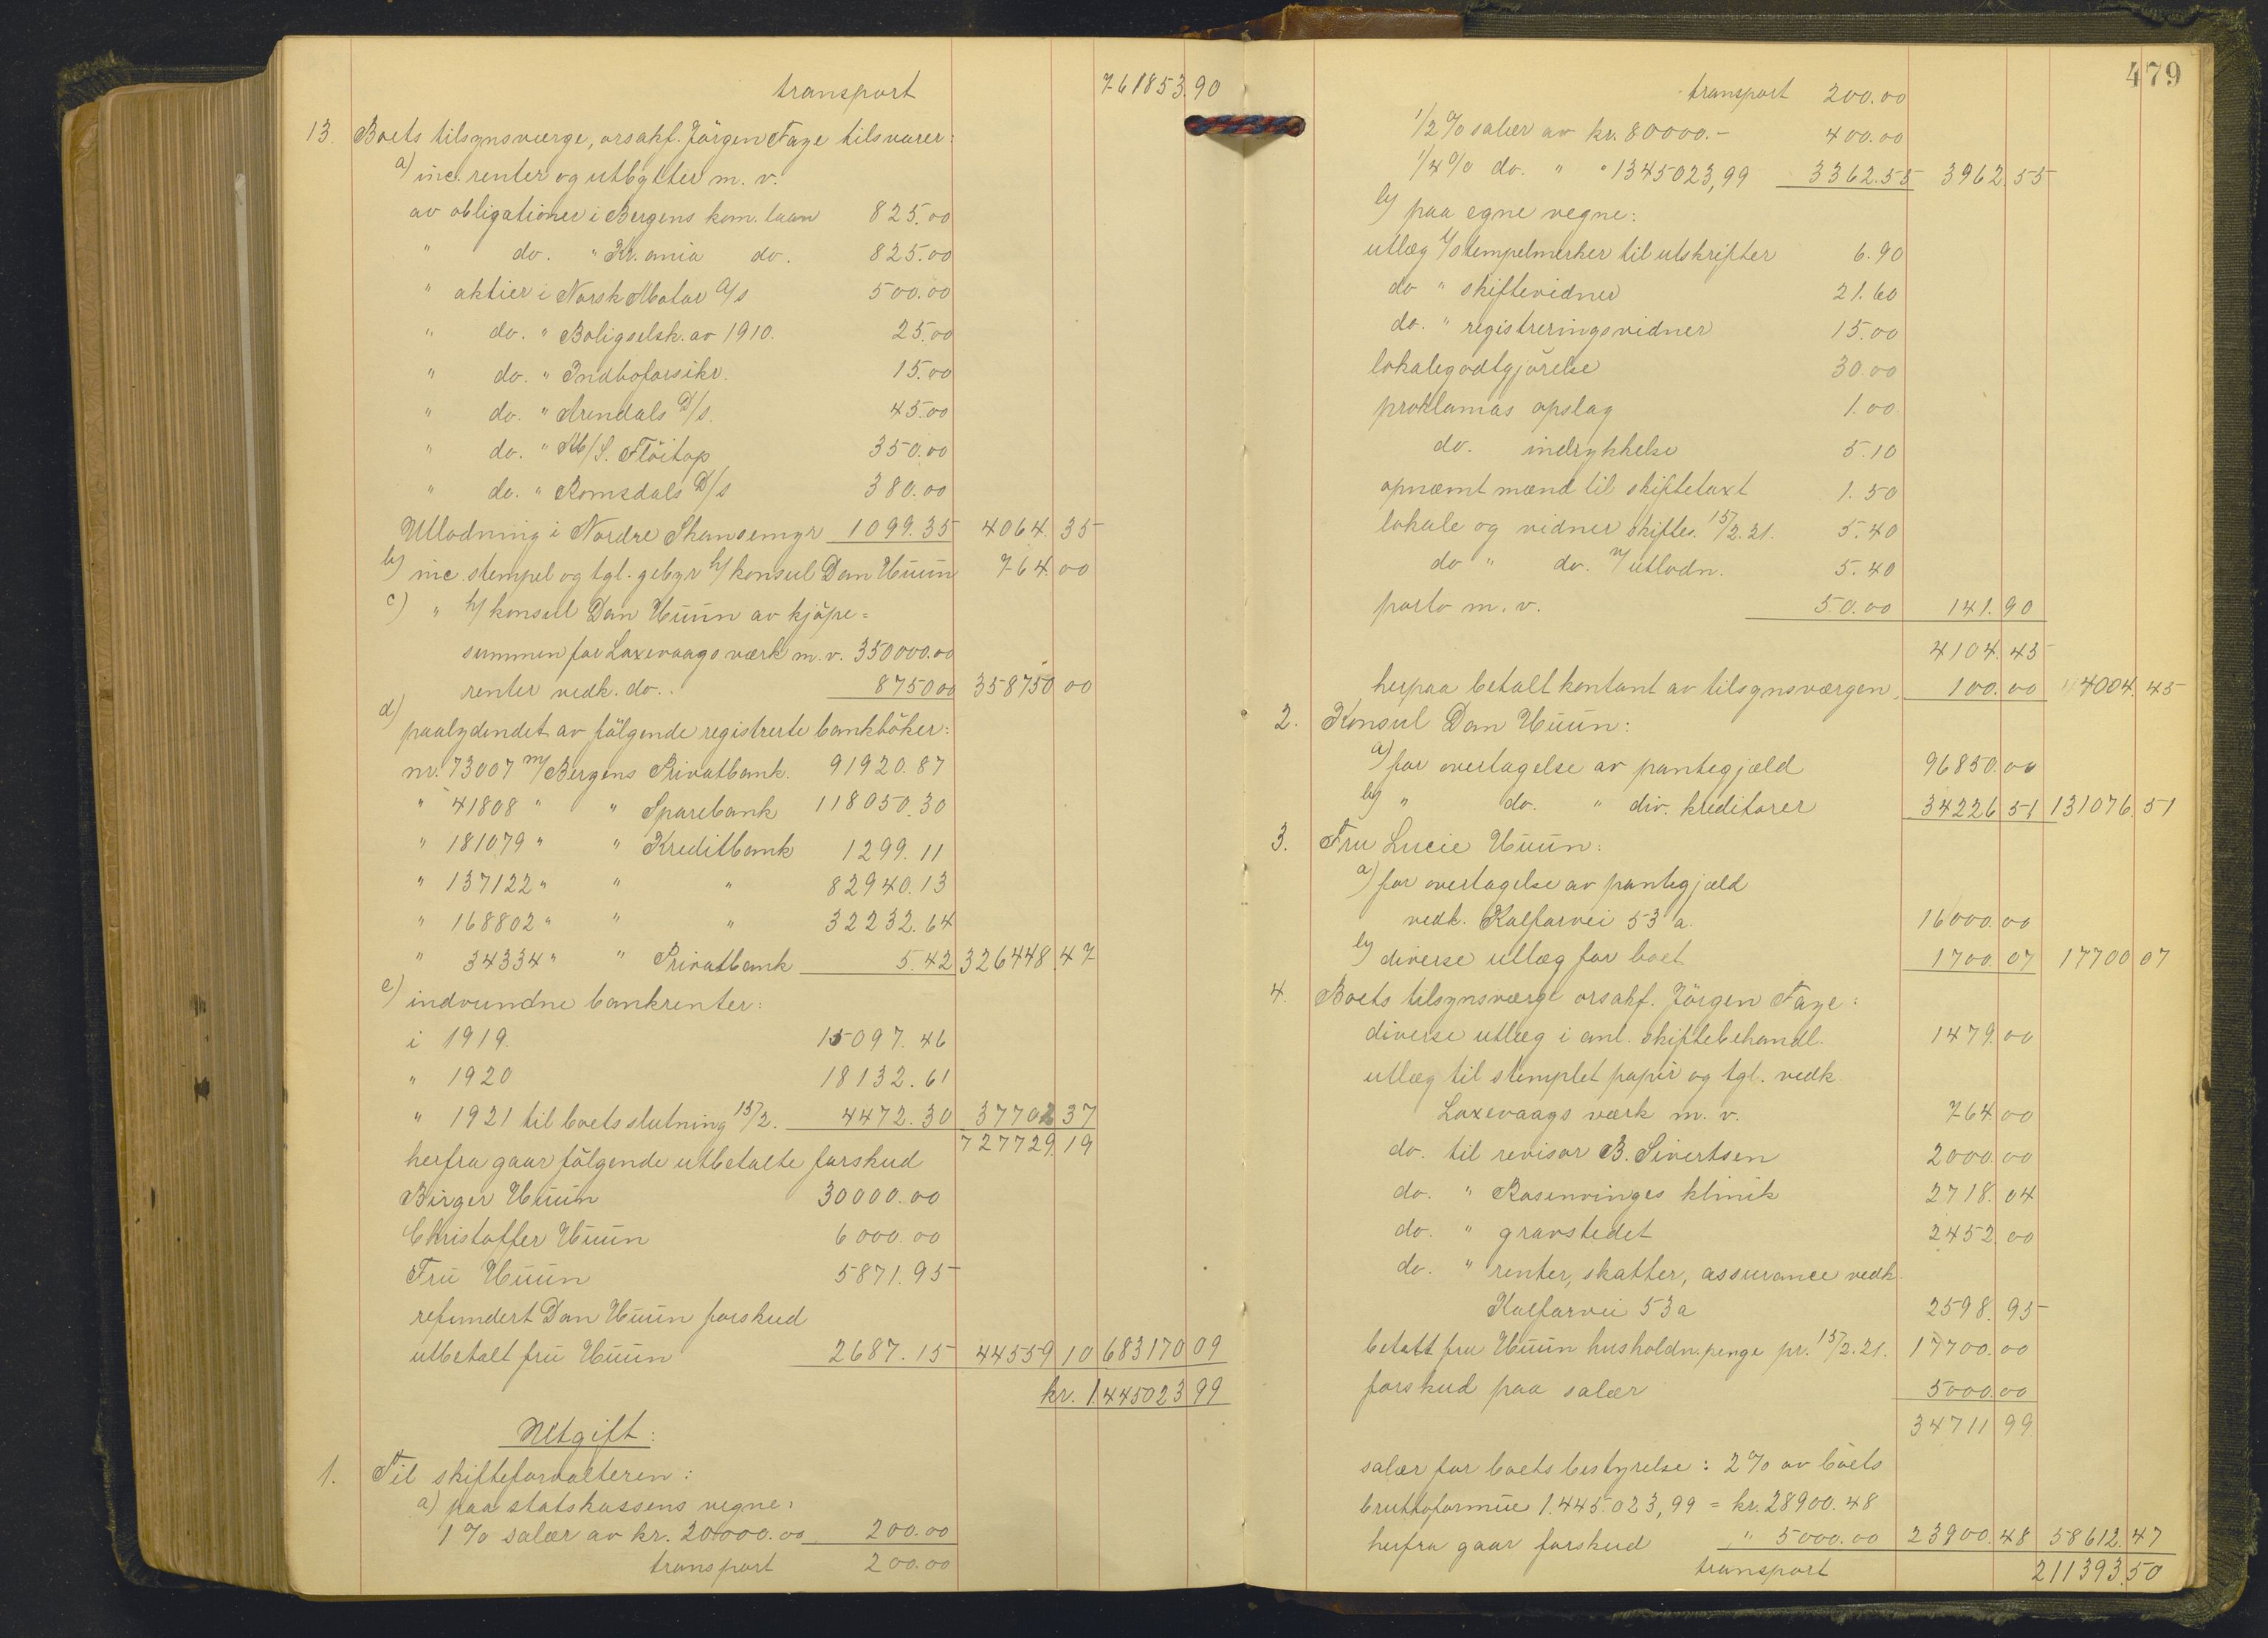 transport 761853.90
13. Boets tilsynsværge, orsakf. Jörgen Faye tilsvarer:
a) inc. renter og utbytter m. v.
av obligationer i Bergens kom. laan 825.00
" do. " Kr.ania do. 825.00
" aktier i Norsk Motor A/s 500.00
" do. " Boligselsk. av 1910. 25.00
" do. " Indboforsikr. 15.00
" do. " Arendals D/s. 45.00
" do. " M/S. Flöitop 350.00
" do. " Romsdals D/s 380.00
Utlodning i Nordre Skansemyr 1099.35 4064.35
b) inc. stempel og tgl. gebyr h/ konsul Dan Huun 764.00
c) " h/ konsul Dan Huun av kjöpe=
summen for Laxevaags værk m. v. 350000.00
renter vedk. do.. 8750 00 358750 00
d) paalydendet av fölgende registrerte bankböker:
nr. 73007 m/ Bergens Privatbank. 91920.87
" 41808 " " Sparebank 118050.30
" 181079 " " Kreditbank 1299.11
" 137122 " " " 82940.13
" 168802 " " " 32232.64
" 34334 " " Privatbank 5.42 326448.47
e) indvundne bankrenter:
i 1919. 15097.46
" 1920 18132.61
" 1921 til boets slutning 15/2. 4472.30 37702 37
727729.19
herfra gaar fölgende utbetalte forskud
Birger Huun 30000.00
Christoffer Huun 6000.00
Fru Huun 5871.95
refundert Dan Huun forskud
utbetalt fru Huun 2687.15 44559 10 683170 09
kr. 1.445023 99
Utgift:
1. Til skifteforvalteren:
a) paa statskassens vegne:
1% salær av kr. 20000.00 200.00
transport 200.00
479
transport 200.00
1/2 % salær av kr. 80000.- 400.00
1/4 % do. " " 1345023,99 3362.55 3962.55
b) paa egne vegne:
utlæg t/ stempelmerker til utskrifter 6.90
do " skiftevidner 21.60
do. " registreringsvidner 15.00
lokalegodtgjörelse 30.00
proklamas opslag 1.00
do. indrykkelse 5.10
opnæmt mænd til skiftetaxt 1.50
lokale og vidner skiftes. 15/2.21. 5.40
do " do. v/ utlodn. 5.40
porto m. v. 50.00 141.90
4104.45
herpaa betalt kontant av tilsynsværgen 100.00 4004.45
2. Konsul Dan Huun:
a) for overtagelse av pantegjæld 96850.00
b) " do. " div. kreditorer 34226 51 131076.51
3. Fru Lucie Huun:
a) for overtagelse av pantegjæld
vedk. Kalfarvei 53 a. 16000.00
b) diverse utlæg for boet 1700.07 17700 07
4. Boets tilsynsværge orsakf. Jörgen Faye:
diverse utlæg i anl. skiftebehandl. 1479.00
utlæg til stemplet papir og tgl. vedk.
Laxevaags værk m. v. 764.00
do. til revisor B. Sivertsen 2000.00
do. " Rosenvinges klinik 2718.04
do. " gravstedet 2452.00
do. " renter, skatter, assurance vedk.
Kalfarvei 53 a 2598.95
betalt fru Huun husholdn.penge pr. 15/2.21. 17700.00
forskud paa salær 5000.00
34711 99
salær for boets bestyrelse: 2% av boets
bruttoformue 1.445.023,99 = kr. 28900.48
herfra gaar forskud " 5000.00 23900.48 58612.47
transport 211393.50